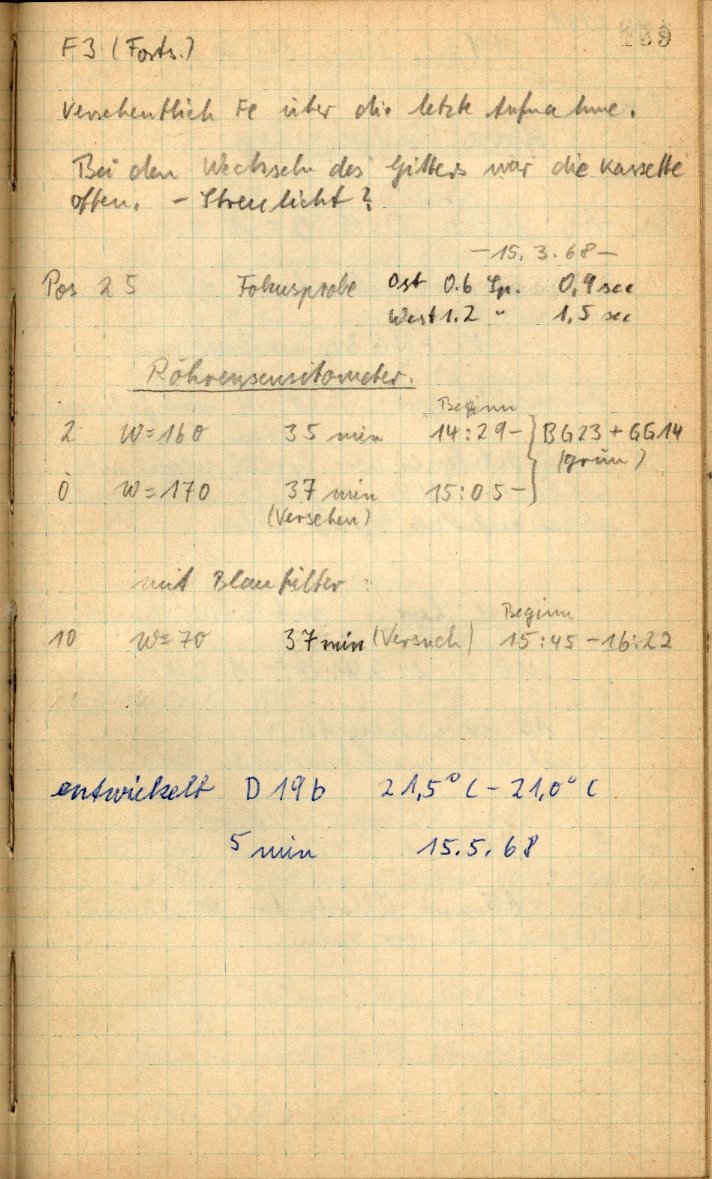 139
F3 (Forts.)
Versehentlich Fe über die letzte Aufnahme.
Bei den Wechseln des Gitters war die Kassette
offen. – Streulicht?
– 15. 3. 68 –
Pos 25 Fokusprobe Ost 0.6 Sp. 0,9 sec
West 1.2 " 1,5 sec
Röhrensensitometer.
Beginn
2 W=160 35 min 14:29– } BG23 + GG14
(grün)
0 W=170 37 min 15:05–
(Versehen)
mit Blaufilter:
Beginn
10 W=70 37 min (Versuch) 15:45 – 16:22
entwickelt D 19b 21,5° C – 21,0° C
5 min 15.5.68